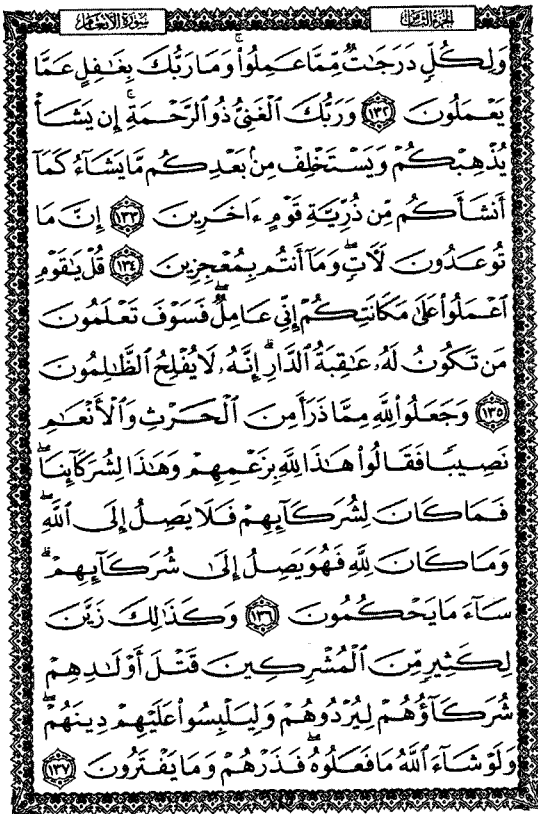 الجزء الثامن
سورة الأنعام
وَلِكُلٍّ دَرَجَٰتٌ مِّمَّا عَمِلُوا۟ ۚ وَمَا رَبُّكَ بِغَٰفِلٍ عَمَّا
يَعْمَلُونَ ١٣٢ وَرَبُّكَ ٱلْغَنِىُّ ذُو ٱلرَّحْمَةِ ۚ إِن يَشَأْ
يُذْهِبْكُمْ وَيَسْتَخْلِفْ مِنۢ بَعْدِكُم مَّا يَشَآءُ كَمَآ
أَنشَأَكُم مِّن ذُرِّيَّةِ قَوْمٍ ءَاخَرِينَ ١٣٣ إِنَّ مَا
تُوعَدُونَ لَءَاتٍ ۖ وَمَآ أَنتُم بِمُعْجِزِينَ ١٣٤ قُلْ يَٰقَوْمِ
ٱعْمَلُوا۟ عَلَىٰ مَكَانَتِكُمْ إِنِّى عَامِلٌ ۖ فَسَوْفَ تَعْلَمُونَ
مَن تَكُونُ لَهُۥ عَٰقِبَةُ ٱلدَّارِ ۗ إِنَّهُۥ لَا يُفْلِحُ ٱلظَّٰلِمُونَ
١٣٥ وَجَعَلُوا۟ لِلَّهِ مِمَّا ذَرَأَ مِنَ ٱلْحَرْثِ وَٱلْأَنْعَٰمِ
نَصِيبًا فَقَالُوا۟ هَٰذَا لِلَّهِ بِزَعْمِهِمْ وَهَٰذَا لِشُرَكَآئِنَا ۖ
فَمَا كَانَ لِشُرَكَآئِهِمْ فَلَا يَصِلُ إِلَى ٱللَّهِ ۖ
وَمَا كَانَ لِلَّهِ فَهُوَ يَصِلُ إِلَىٰ شُرَكَآئِهِمْ ۗ
سَآءَ مَا يَحْكُمُونَ ١٣٦ وَكَذَٰلِكَ زَيَّنَ
لِكَثِيرٍ مِّنَ ٱلْمُشْرِكِينَ قَتْلَ أَوْلَٰدِهِمْ
شُرَكَآؤُهُمْ لِيُرْدُوهُمْ وَلِيَلْبِسُوا۟ عَلَيْهِمْ دِينَهُمْ ۖ
وَلَوْ شَآءَ ٱللَّهُ مَا فَعَلُوهُ ۖ فَذَرْهُمْ وَمَا يَفْتَرُونَ ١٣٧